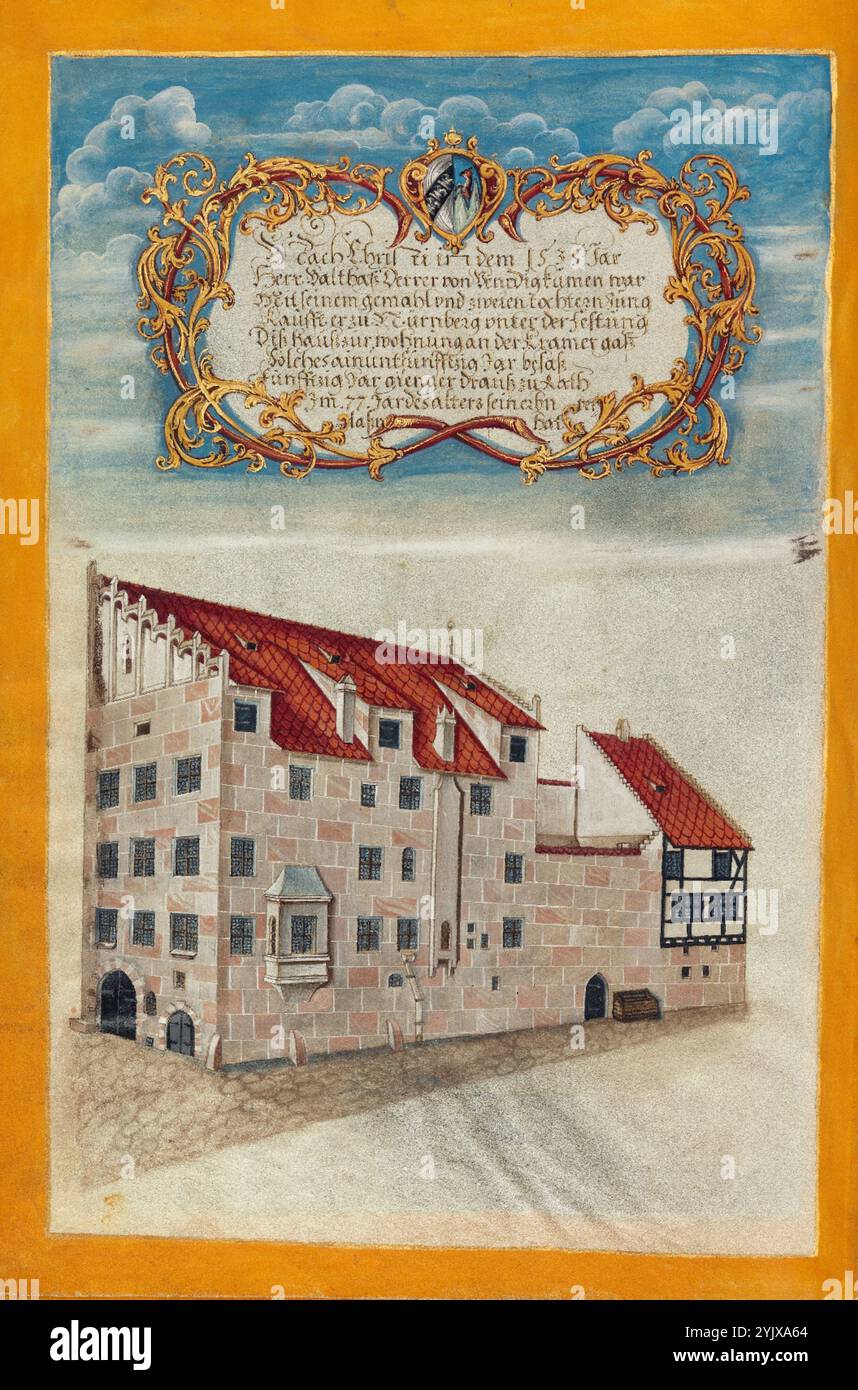 Nach Chris ti in dem 1538 Jar
Herr Balthaß Derrer von Venedig kumen war
Mit seinem gemahl vnd zweien tochtern Jung
Kaufft er zu Nürnberg vnter der Festung
Diß Hauß zur wohnung an der Kramer gaß
Solches ain unt funfftzig Jar besaß
funfftzig Jar gieng er drauß zu Rath
Im 77. Jar des alters sein
hat
alamy
Image ID: 2YJXA64
www.alamy.com